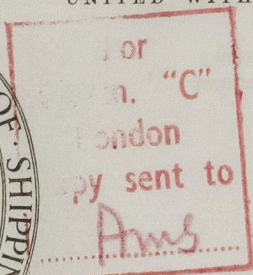 UNITED WITH
or
"C"
ondon
py sent to
Ams
OF SHIPPIN